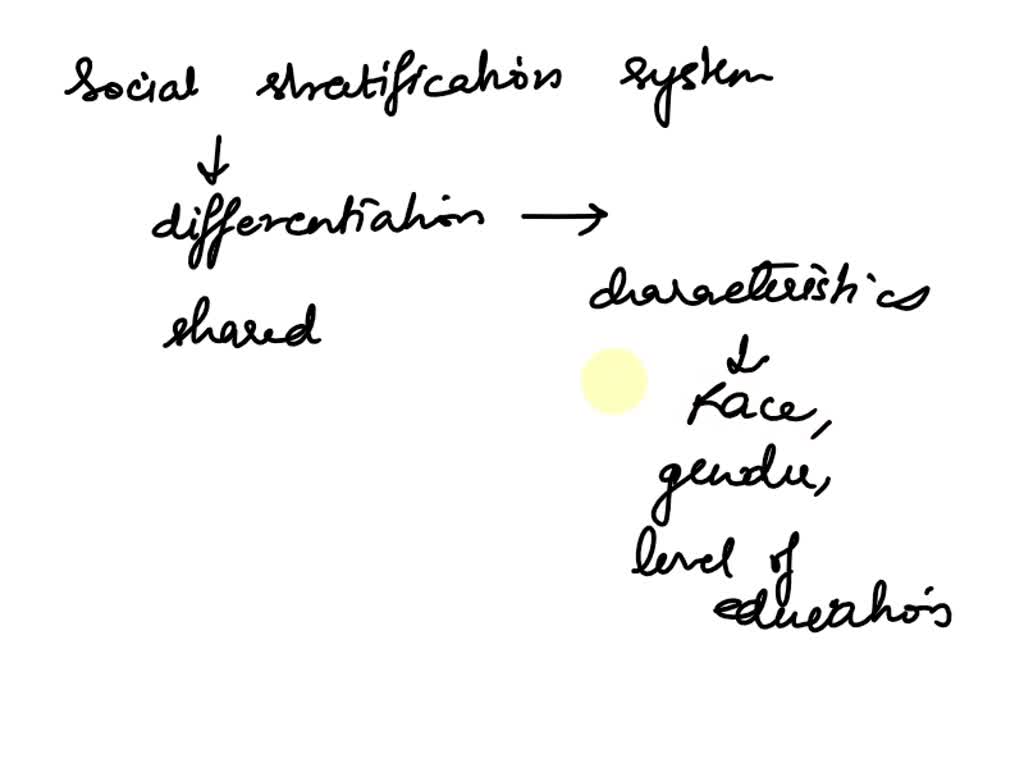 Social stratification system
↓
differentiation →
characteristics
shared
↓
race,
gender,
level of
education